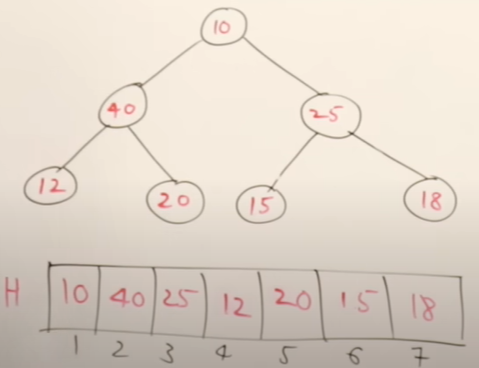 10
40 25
12 20 15 18
H 10 40 25 12 20 15 18
1 2 3 4 5 6 7